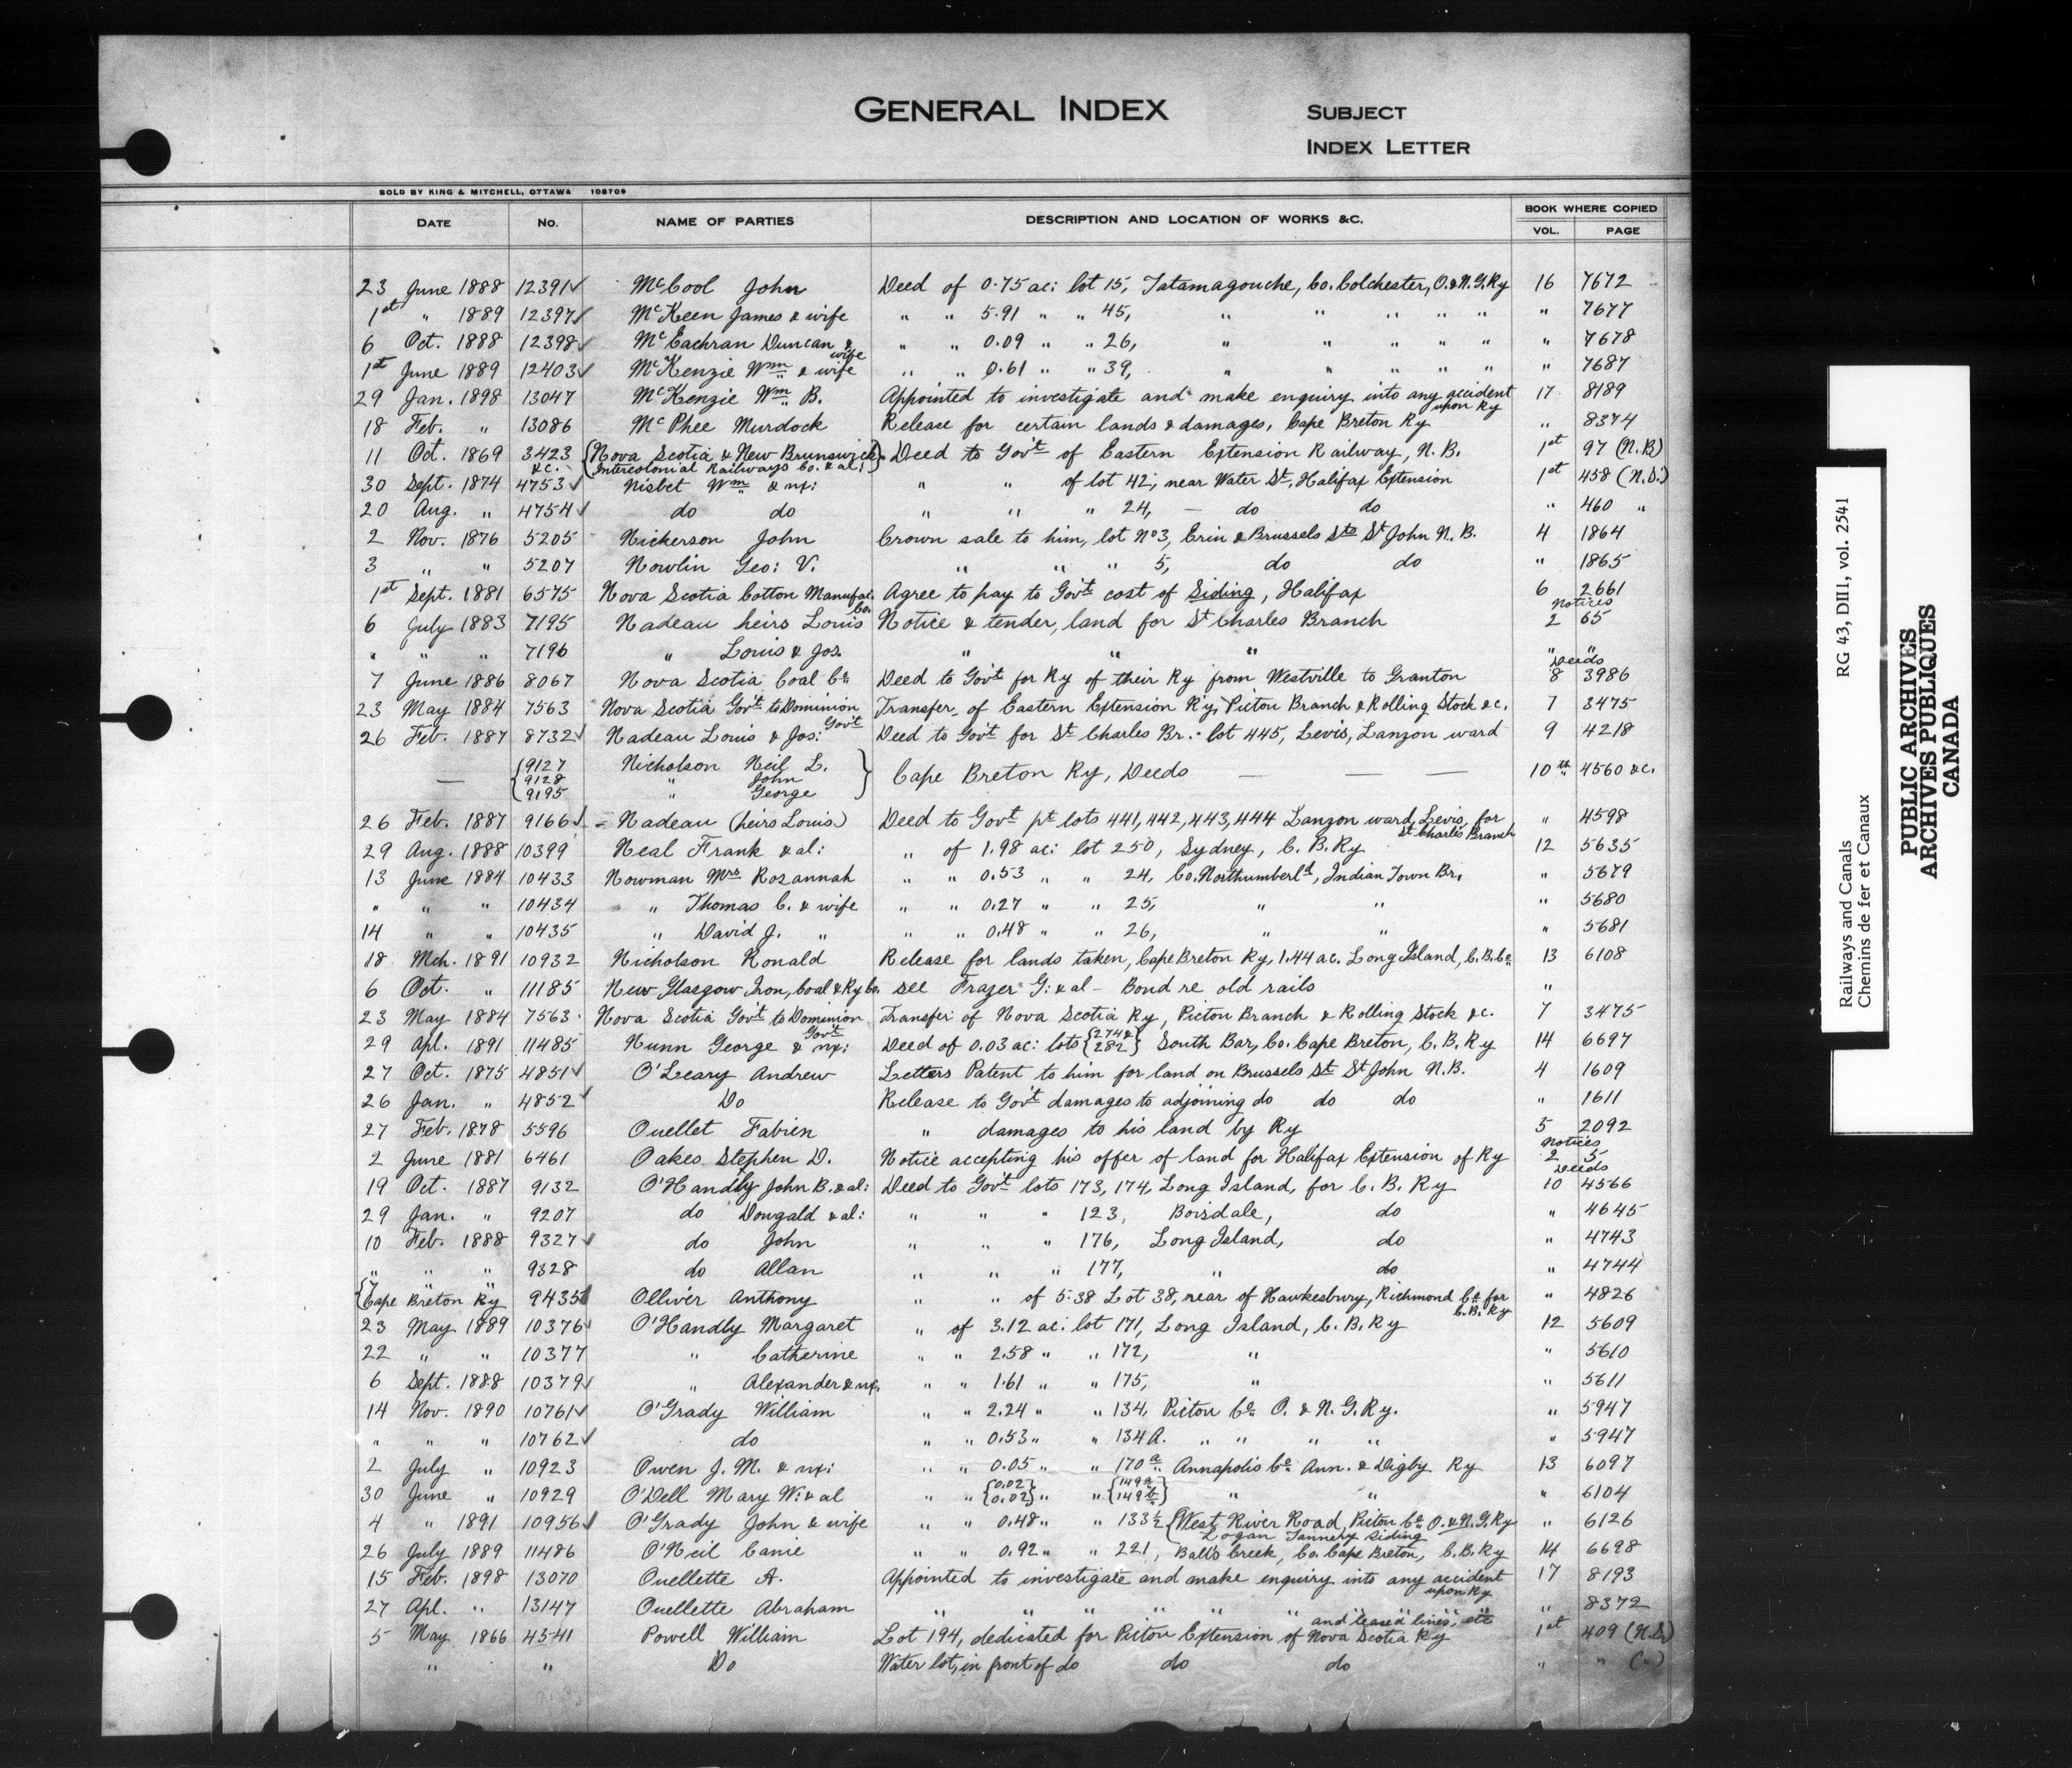 GENERAL INDEX
SUBJECT
INDEX LETTER
SOLD BY KING & MITCHELL, OTTAWA 108709
DATE No. NAME OF PARTIES DESCRIPTION AND LOCATION OF WORKS &C. BOOK WHERE COPIED
VOL. PAGE
23 June 1888 12391✓ McCool John Deed of 0.75 ac: lot 15, Tatamagouche, Co. Colchester, O.&N.G.Ry 16 7672
1st " 1889 12397✓ McKeen James & wife " " 5.91 " " 45, " " " " " " 7677
6 Oct. 1888 12398✓ McEachran Duncan & wife " " 0.09 " " 26, " " " " " " 7678
1st June 1889 12403✓ McKenzie Wm & wife " " 0.61 " " 39, " " " " " " 7687
29 Jan. 1898 13047 McKenzie Wm B. Appointed to investigate and make enquiry into any accident upon Ry 17 8189
18 Feb. " 13086 McPhee Murdock Release for certain lands & damages, Cape Breton Ry " 8374
11 Oct. 1869 3423 &c. {Nova Scotia & New Brunswick Intercolonial Railways Co. & al:} Deed to Gov't of Eastern Extension Railway, N.B. 1st 97 (N.B)
30 Sept. 1874 4753✓ Nisbet Wm & ux: " " of lot 42, near Water St, Halifax Extension 1st 458 (N.S.)
20 Aug. " 4754✓ do do " " " 24, — do do " 460 "
2 Nov. 1876 5205 Nickerson John Crown sale to him, lot No 3, Erin & Brussels Sts St John N.B. 4 1864
3 " " 5207 Nowlin Geo: V. " " " 5, do do " 1865
1st Sept. 1881 6575 Nova Scotia Cotton Manufac. Co. Agree to pay to Gov't cost of Siding, Halifax 6 2661
Notices
6 July 1883 7195 Nadeau heirs Louis Notice & tender, land for St Charles Branch 2 65
" " " 7196 " Louis & Jos. " " " " "
Deeds
7 June 1886 8067 Nova Scotia Coal Co Deed to Gov't for Ry of their Ry from Westville to Granton 8 3986
23 May 1884 7563 Nova Scotia Gov't to Dominion Gov't Transfer of Eastern Extension Ry, Pictou Branch & Rolling Stock &c. 7 3475
26 Feb. 1887 8732✓ Nadeau Louis & Jos: Deed to Gov't for St Charles Br. - lot 445, Levis, Lauzon ward 9 4218
— {9127 Nicholson Neil L.
9128 " John } Cape Breton Ry, Deeds — — — 10th 4560 &c.
9195 " George
26 Feb. 1887 9166✓ - Nadeau (heirs Louis) Deed to Gov't pt lots 441, 442, 443, 444 Lauzon ward, Levis, for St Charles Branch " 4598
29 Aug. 1888 10399 Neal Frank & al: " of 1.98 ac: lot 250, Sydney, C.B.Ry 12 5635
13 June 1884 10433 Nowman Mrs Rosannah " " 0.53 " " 24, Co. Northumberld, Indian Town Br. " 5679
" " " 10434 " Thomas C. & wife " " 0.27 " " 25, " " " 5680
14 " " 10435 " David J. " " " 0.48 " " 26, " " " 5681
18 Mch. 1891 10932 Nicholson Ronald Release for lands taken, Cape Breton Ry, 1.44 ac. Long Island, C.B.Co 13 6108
6 Oct. " 11185 New Glasgow Iron, Coal & Ry Co. see Frazer G: & al - Bond re old rails "
23 May 1884 7563 Nova Scotia Gov't to Dominion Gov't Transfer of Nova Scotia Ry, Pictou Branch & Rolling Stock &c. 7 3475
29 Apl. 1891 11485 Nunn George & ux: Deed of 0.03 ac: lots {274 & 282} South Bar, Co. Cape Breton, C.B.Ry 14 6697
27 Oct. 1875 4851✓ O'Leary Andrew Letters Patent to him for land on Brussels St St John N.B. 4 1609
26 Jan. " 4852✓ Do Release to Gov't damages to adjoining do do do " 1611
27 Feb. 1878 5596 Ouellet Fabien " damages to his land by Ry 5 2092
Notices
2 June 1881 6461 Oakes Stephen D. Notice accepting his offer of land for Halifax Extension of Ry 2 5
Deeds
19 Oct. 1887 9132 O'Handly John B. & al: Deed to Gov't lots 173, 174, Long Island, for C.B.Ry 10 4566
29 Jan. " 9207 do Dougald & al: " " " 123, Boisdale, do " 4645
10 Feb. 1888 9327✓ do John " " " 176, Long Island, do " 4743
" " " 9328 do Allan " " " 177, " do " 4744
{" " "
Cape Breton Ry 9435 Olliver Anthony " " of 5.38 Lot 38, near of Hawkesbury, Richmond Co for C.B.Ry " 4826
23 May 1889 10376✓ O'Handly Margaret " of 3.12 ac: lot 171, Long Island, C.B.Ry 12 5609
22 " " 10377 " Catherine " " 2.58 " " 172, " " 5610
6 Sept. 1888 10379✓ " Alexander & ux. " " 1.61 " " 175, " " 5611
14 Nov. 1890 10761✓ O'Grady William " " 2.24 " " 134, Pictou Co O. & N.G.Ry. " 5947
" " " 10762✓ do " " 0.53 " " 134A. " " " " " 5947
2 July " 10923 Owen J.M. & ux: " " 0.05 " " 170a Annapolis Co Ann. & Digby Ry 13 6097
30 June " 10929 O'Dell Mary W: & al " " {0.02 0.02} " " {149a 149b} " " " 6104
4 " 1891 10956✓ O'Grady John & wife " " 0.48 " " 133½ {West River Road, Pictou Co O.&N.G.Ry Logan Tannery Siding " 6126
26 July 1889 11486 O'Neil Canie " " 0.92 " " 221, Ball's Creek, Co. Cape Breton, C.B.Ry 14 6698
15 Feb. 1898 13070 Ouellette A. Appointed to investigate and make enquiry into any accident upon Ry 17 8193
27 Apl. " 13147 Ouellette Abraham " " " " " " and leased lines, etc " 8372
5 May 1866 4541 Powell William Lot 194, dedicated for Pictou Extension of Nova Scotia Ry 1st 409 (N.S.)
" " Do Water lot, in front of do do do " " (")
Railways and Canals RG 43, DIII, vol. 2541
Chemins de fer et Canaux
PUBLIC ARCHIVES
ARCHIVES PUBLIQUES
CANADA